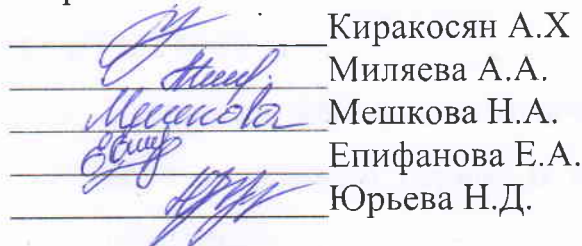 Киракосян А.Х
Миляева А.А.
Мешкова Мешкова Н.А.
Епифанова Е.А.
Юрьева Н.Д.